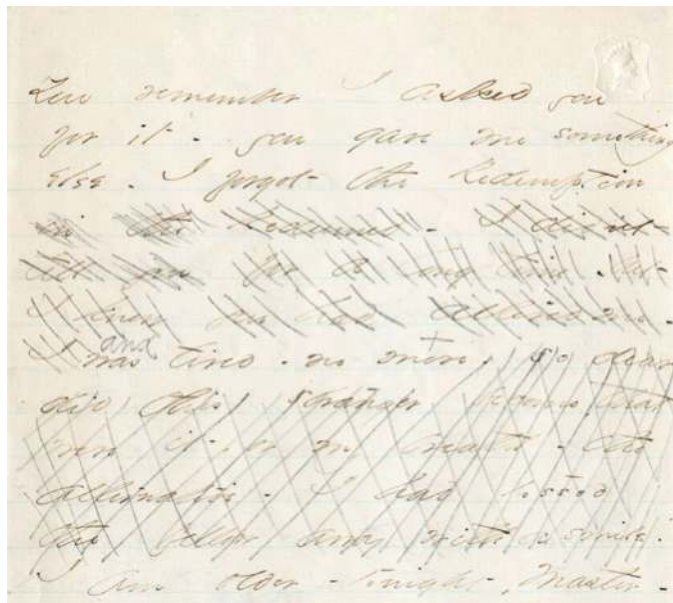 You remember I asked you
for it - you gave me something
else. I forgot the Redemption
in the Redeemed - I did'nt
tell you for a long time - but
I knew you had altered me -
and
I was tired - no more - so dear
did this stranger become that
were it, or my breath - the
Alternative - I had tossed
the fellow away with a smile.
I am older - tonight, Master -